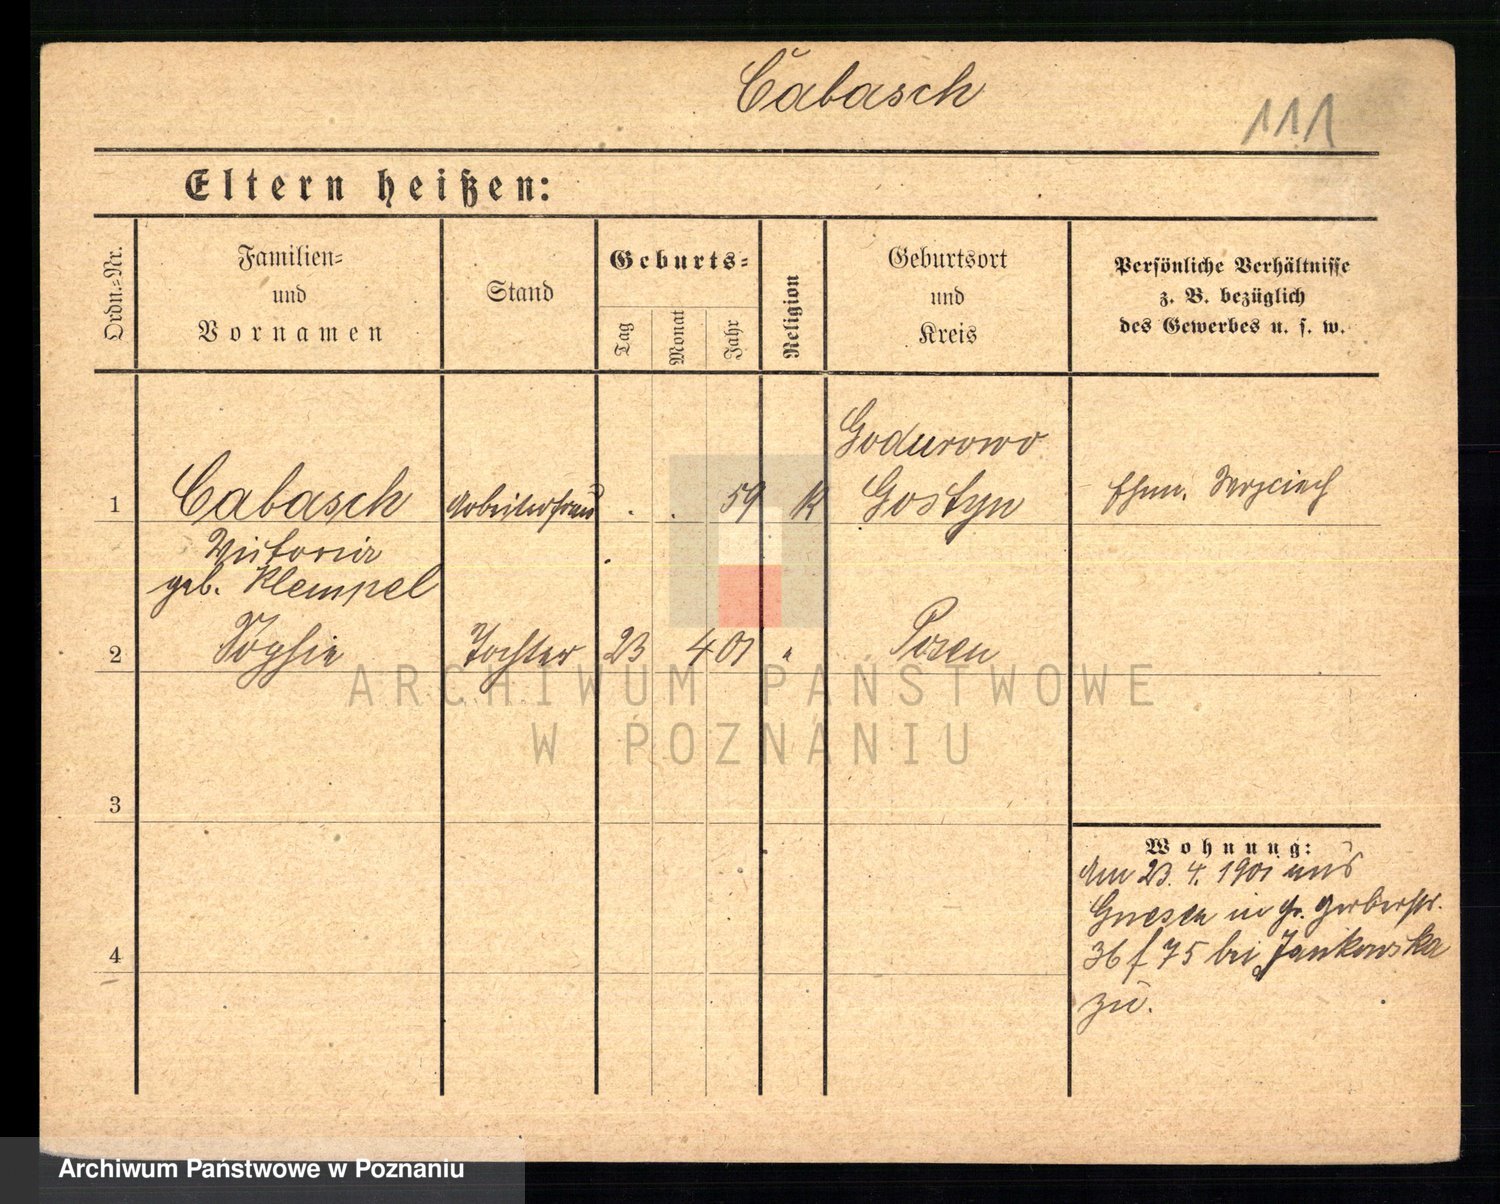 Čabasch
111
Eltern heißen:
Ordn.-Nr.
Familien-
und
Vornamen
Stand
Geburts-
Tag
Monat
Jahr
Religion
Geburtsort
und
Kreis
Persönliche Verhältnisse
z. B. bezüglich
des Gewerbes u. s. w.
Godurowo
1 Cabasch Arbeiterfrau . . 59 K Gostyn Ehem.
Victoria
geb. Klempel
2 Sophie Tochter 23 4 01 " Posen
3
Wohnung:
Am 23. 4. 1901 aus
Gnesen in Gr. Gerberstr.
4
36 f 75 bei Jankowska
zu.
ARCHIWUM PAŃSTWOWE
W POZNANIU
Archiwum Państwowe w Poznaniu